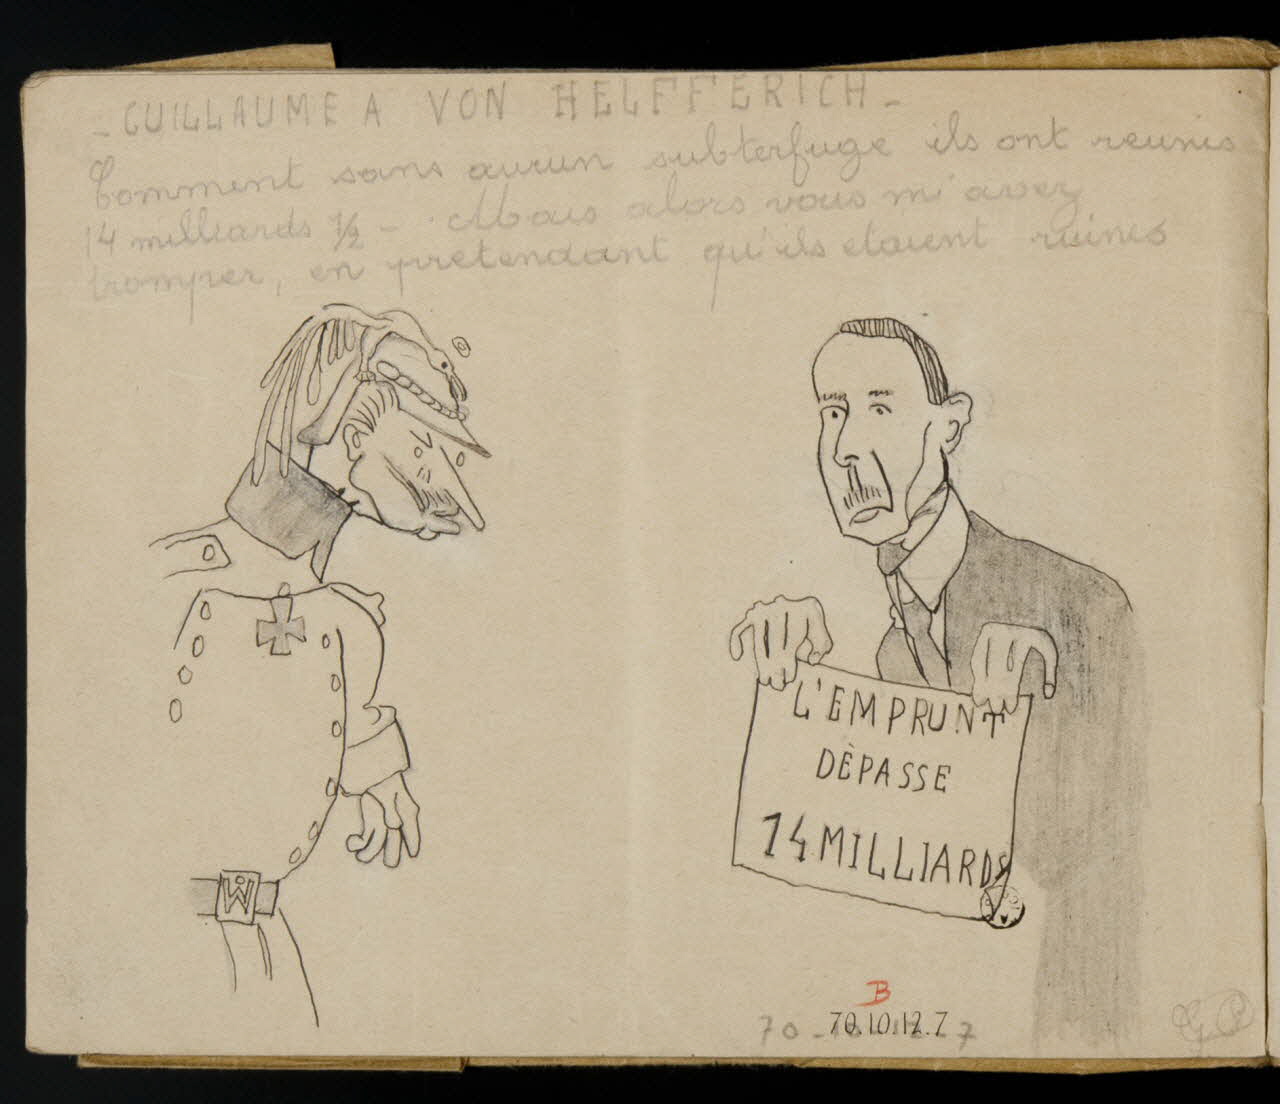 - GUILLAUME A VON HELFFERICH -
Comment sans aucun subterfuge ils ont reunis
14 milliards 1/2 - Mais alors vous m'avez
tromper, en pretendant qu'ils etaient ruinés
L'EMPRUNT
DÈPASSE
14 MILLIARDS
W
B
70.10.12.7